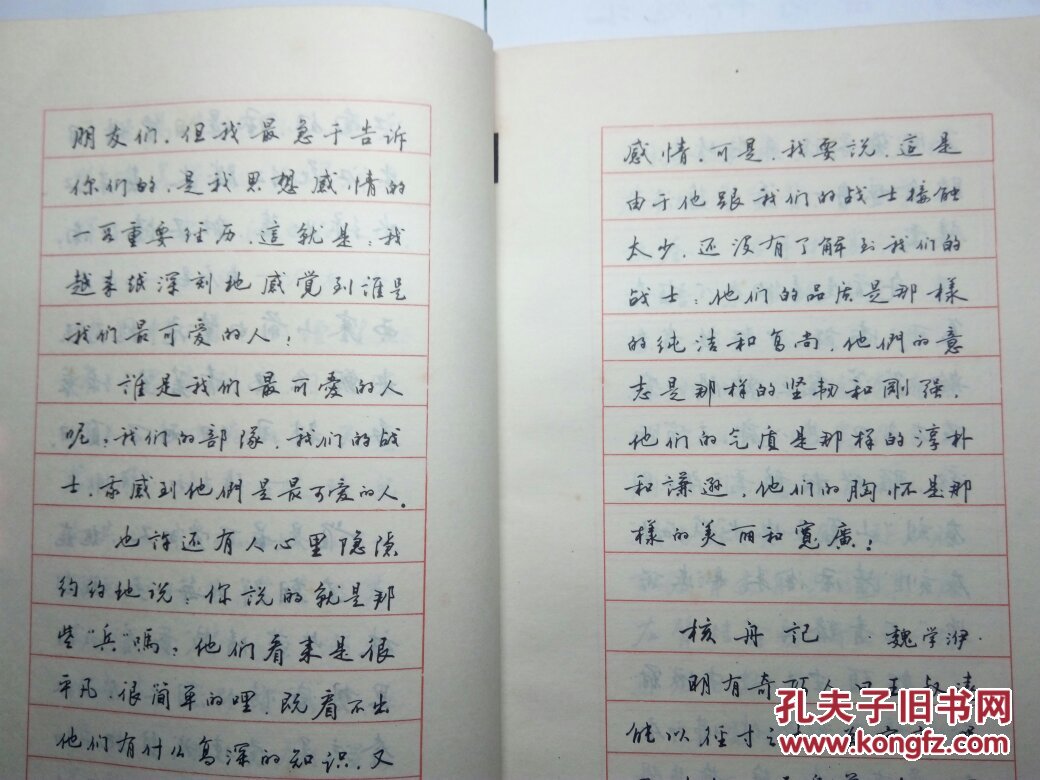 朋友们,但我最急于告诉
你们的,是我思想感情的
一段重要经历,這就是:我
越来越深刻地感覺到誰是
我们最可爱的人!
誰是我们最可愛的人
呢?我们的部隊,我们的战
士,我感到他們是最可爱的人。
也許还有人心里隐隐
约约地说:你説的就是那
些"兵"嗎?他们看来是很
平凡,很簡单的哩,既看不出
他们有什么高深的知识,又
感情。可是,我要说,這是
由于他跟我们的战士接触
太少,还没有了解到我们的
战士:他们的品质是那樣
的纯洁和高尚,他們的意
志是那样的坚韧和刚强,
他们的气质是那样的淳朴
和謙逊,他们的胸怀是那
樣的美丽和寬廣!
核舟記 魏学洢
明有奇巧人曰王叔遠
能以径寸之木
孔夫子旧书网
www.kongfz.com